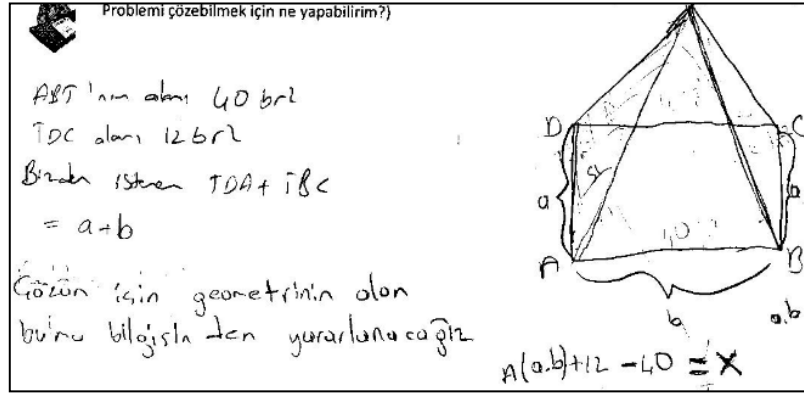 Problemi çözebilmek için ne yapabilirim?)
ABT'nin alanı 40 br2
TDC alanı 12 br2
Bizden istenen TDA + TBC
= a+b
Çözüm için geometrinin alan
bilgisinden yararlanacağız
D C
a a
40
A B
b
a.b
A(a.b)+12 -40 = X